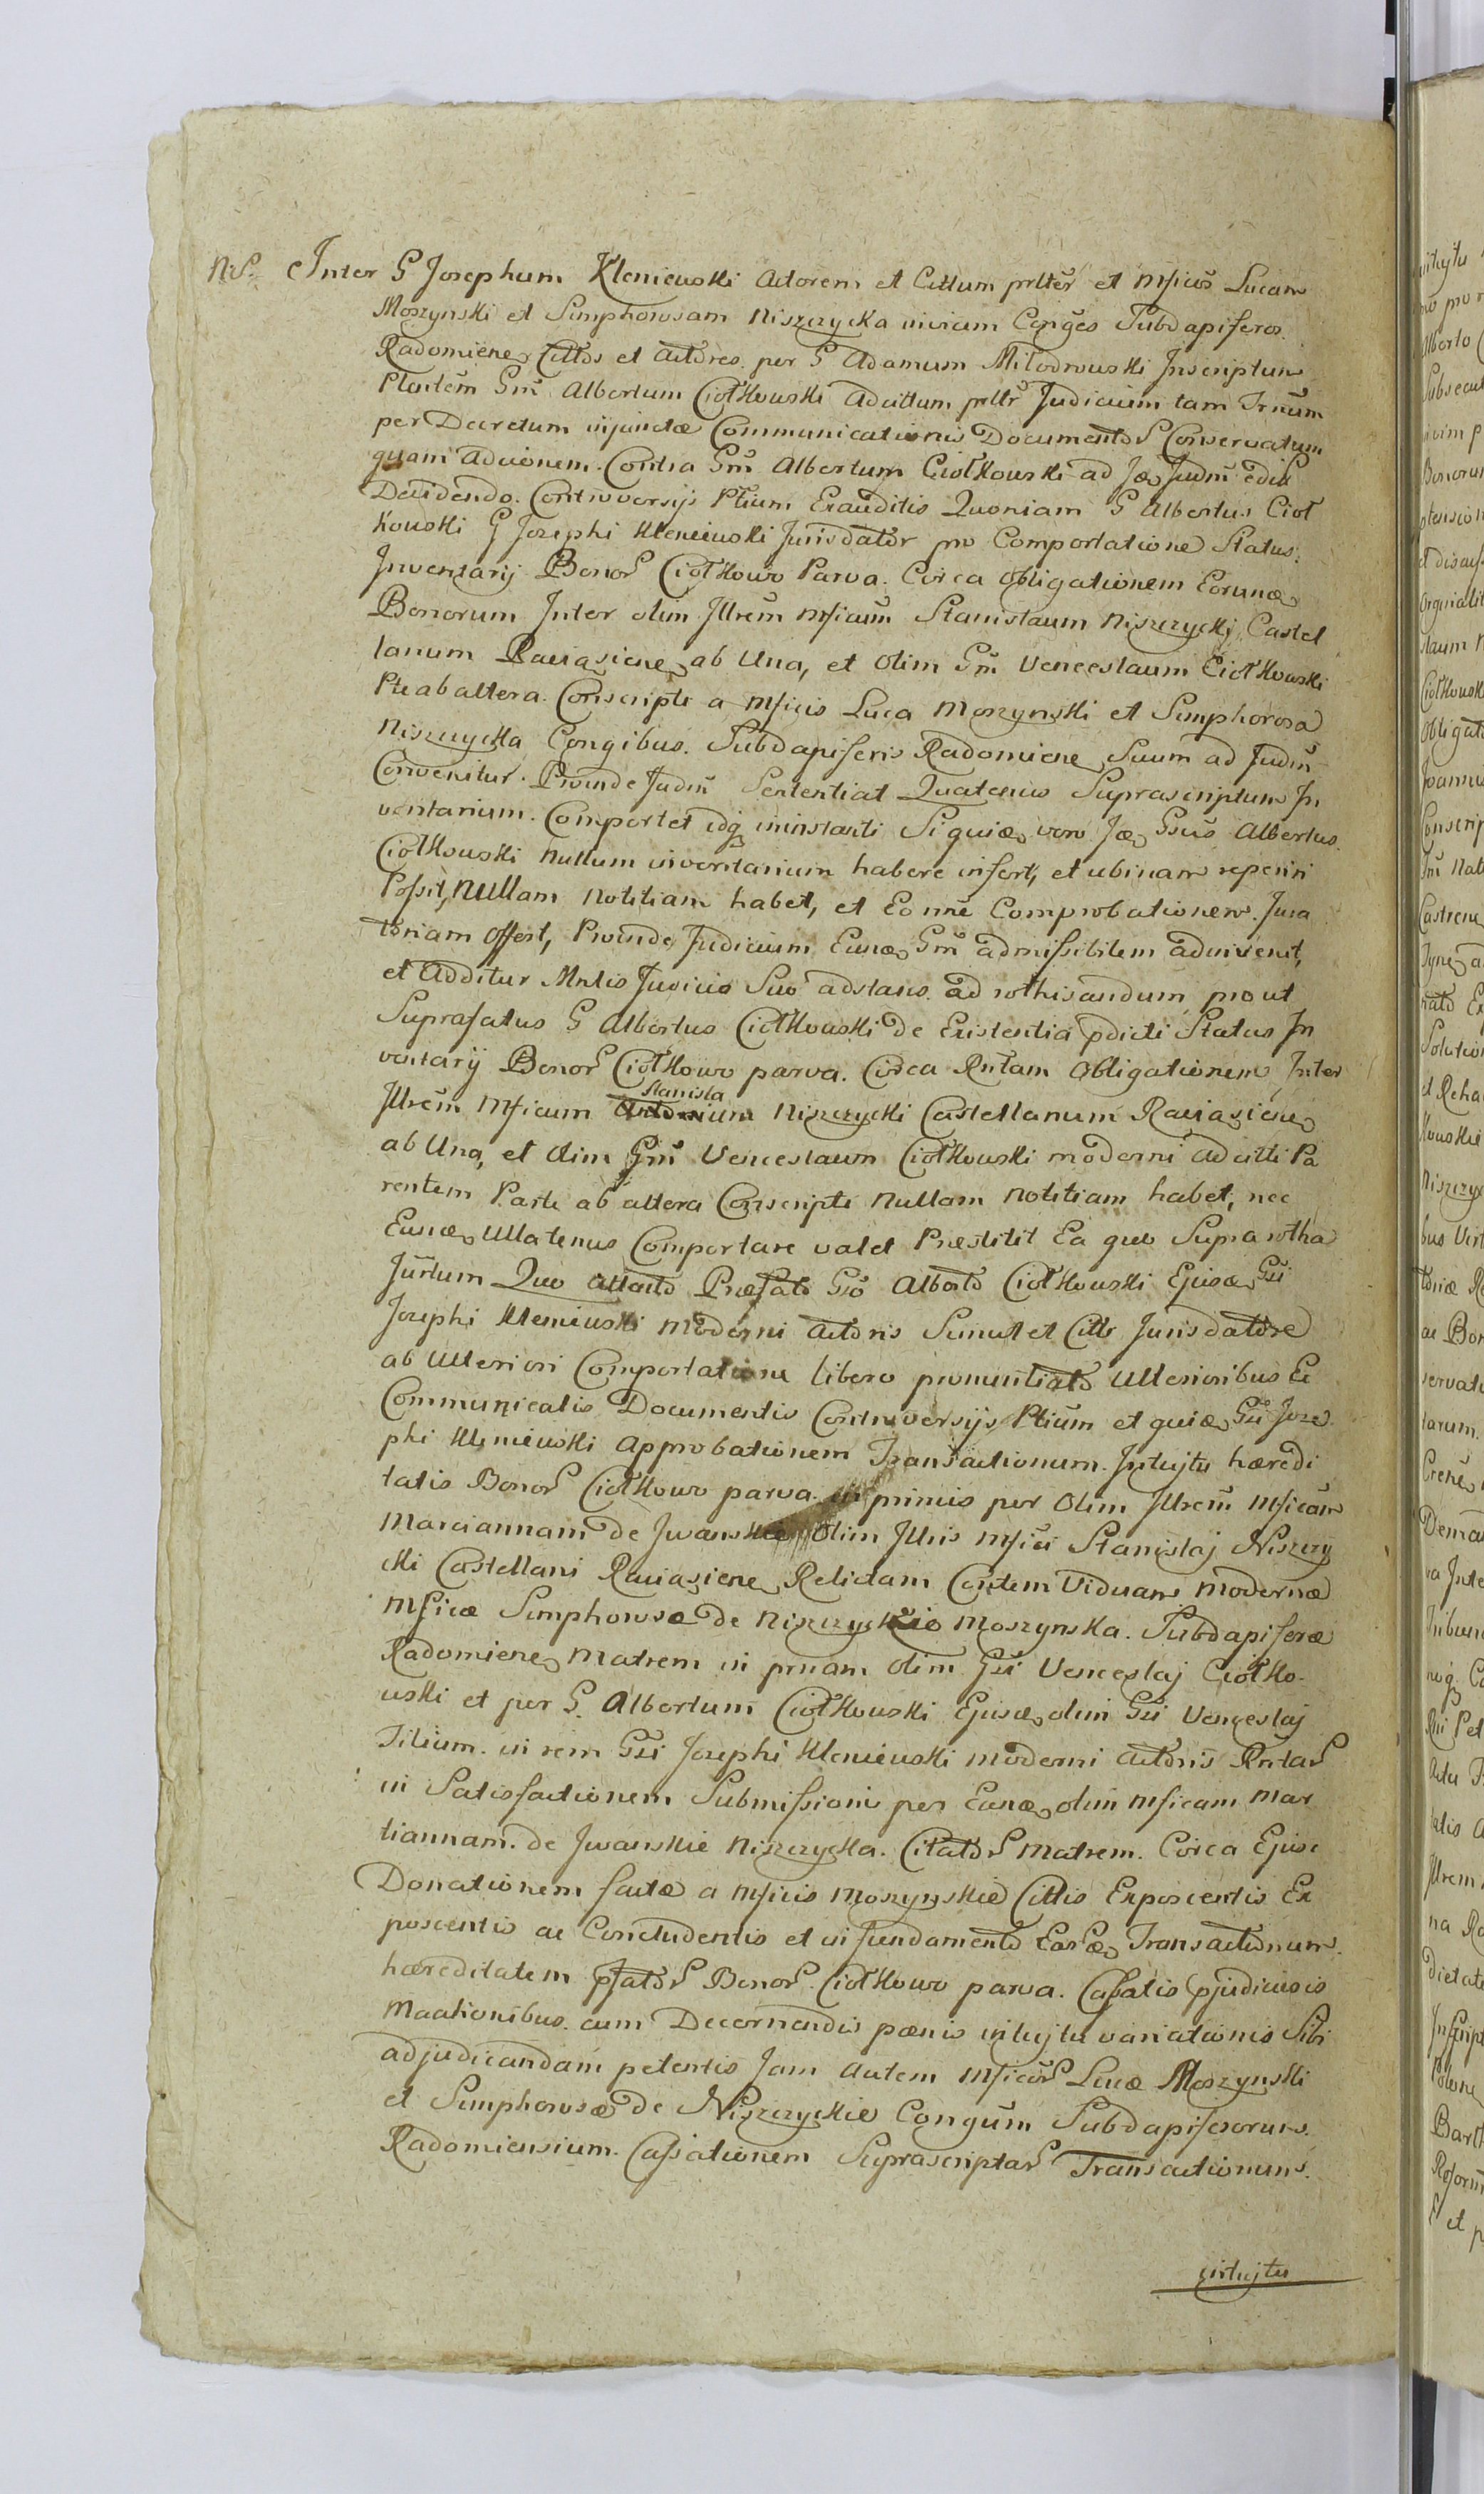 Inter G Josephum Kleniewski Actorem et Cittum prlter et Mficos Lucam
Moszynski et Simphorosam Niszczycka invicem Conges Subdapiferos
Radomiens Cittos et Actores per G Adamum Milodrowski Inscriptum
Plentem Gm Albertum Ciołkowski Adcittum prltr Judicium tam Trnum
per Decretum injunctæ Communicationis Documentor Conservatum
quam Actionem Contra Gm Albertum Ciołkowski ad Judm
Decidendo. Controversijs Ptium Exauditis Quoniam G Albertus Cioł
kowski G Josephi Kleniewski Jurisdator pro Comportatione Status
Inventarij Bonor Ciołkowo Parva. Circa Obligationem Eorund
Bonorum Inter olim Jllrem Mficum Stanislaum Niszczycki Castel
lanum Raciąziens ab Una, et Olim Gm Venceslaum Ciołkowski
Pte ab altera Conscripti a Mficis Luca Moszynski et Simphorosa
Niszczycka Congibus. Subdapiferis Radomiens Suum ad Judm
Convenitur. Proinde Judm Sententiat Quatenus Suprascriptum In
ventarium. Comportet idq ininstanti Siquid vero Gsus Albertus
Ciołkowski Nullum inventarium habere infert, et ubinam reperiri
Possit, Nullam Notitiam habet, et Eo nne Comprobationem Jura
toriam Offert, Proinde Judicium Eund Gm admissibilem adinvenit,
et Additur Mnlis Judicio Suo adstans ad rothisandum prout
Suprafatus G Albertus Ciołkowski de Existentia pdicti Status In
ventarij Bonor Ciołkowo parva. Circa Rntam Obligationem Inter
Jllrem Mficum Stanisla Antonium Niszczycki Castellanum Raciąziens
ab Una, et Olim Gm Venceslaum Ciołkowski moderni Adcitti Pa
rentem Parte ab altera Conscripti Nullam Notitiam habet, nec
Eund Ullatenus Comportare valet Præstitit Ea quo Supra rotha
Jurtum Quo Attento Præfato Gso Alberto Ciołkowski Ejusd Gsi
Josephi Kleniewski Moderni Actoris Simul et Citti Jurisdatore
ab Ulteriori Comportatione libero pronuntiato Ulterioribus Ex
Communicatis Documentis Controversijs Ptium et quid Gsi Jose
phi Kleniewski Approbationem Transactionum. Intujtu hæredi
tatis Bonor Ciołkowo parva. in primis per Olim Jllrem Mficam
Marciannam de Jwanskie Olim Jllris Mfici Stanislaj Niszczy
cki Castellani Raciąziens Relictam Contem Viduam modernæ
Mficæ Simphorosæ de Niszczyckie Moszynska. Subdapiferæ
Radomiens Matrem in prnam Olim Gsi Venceslaj Ciołko
wski et per G. Albertum Ciołkowski Ejusd olim Gsi Venceslaj
Filium in rem Gsi Josephi Kleniewski moderni Actoris Rntar
in Satisfactionem Submissionis per Eand olim Mficam Mar
tiannam. de Jwanskie Niszczycka. Citator Matrem. Circa Ejus
Donationem factæ a Mficis Moszynskie Cittis Exposcentis Ex
poscentis ac Concludentis et in fundamento Ear Transactionum
hæreditatem pfator Bonor. Ciołkowo parva. Cassatis pjudiciosis
Maationibus. cum Decernendis pænis intujtu variationis Sibi
adjudicandam petentis Jam Autem Mficor Lucæ Moszynski
et Simphorosæ de Niszczyckie Congum Subdapiferorum
Radomiensium. Cassationem Suprascriptar Transactionum.
intujtu